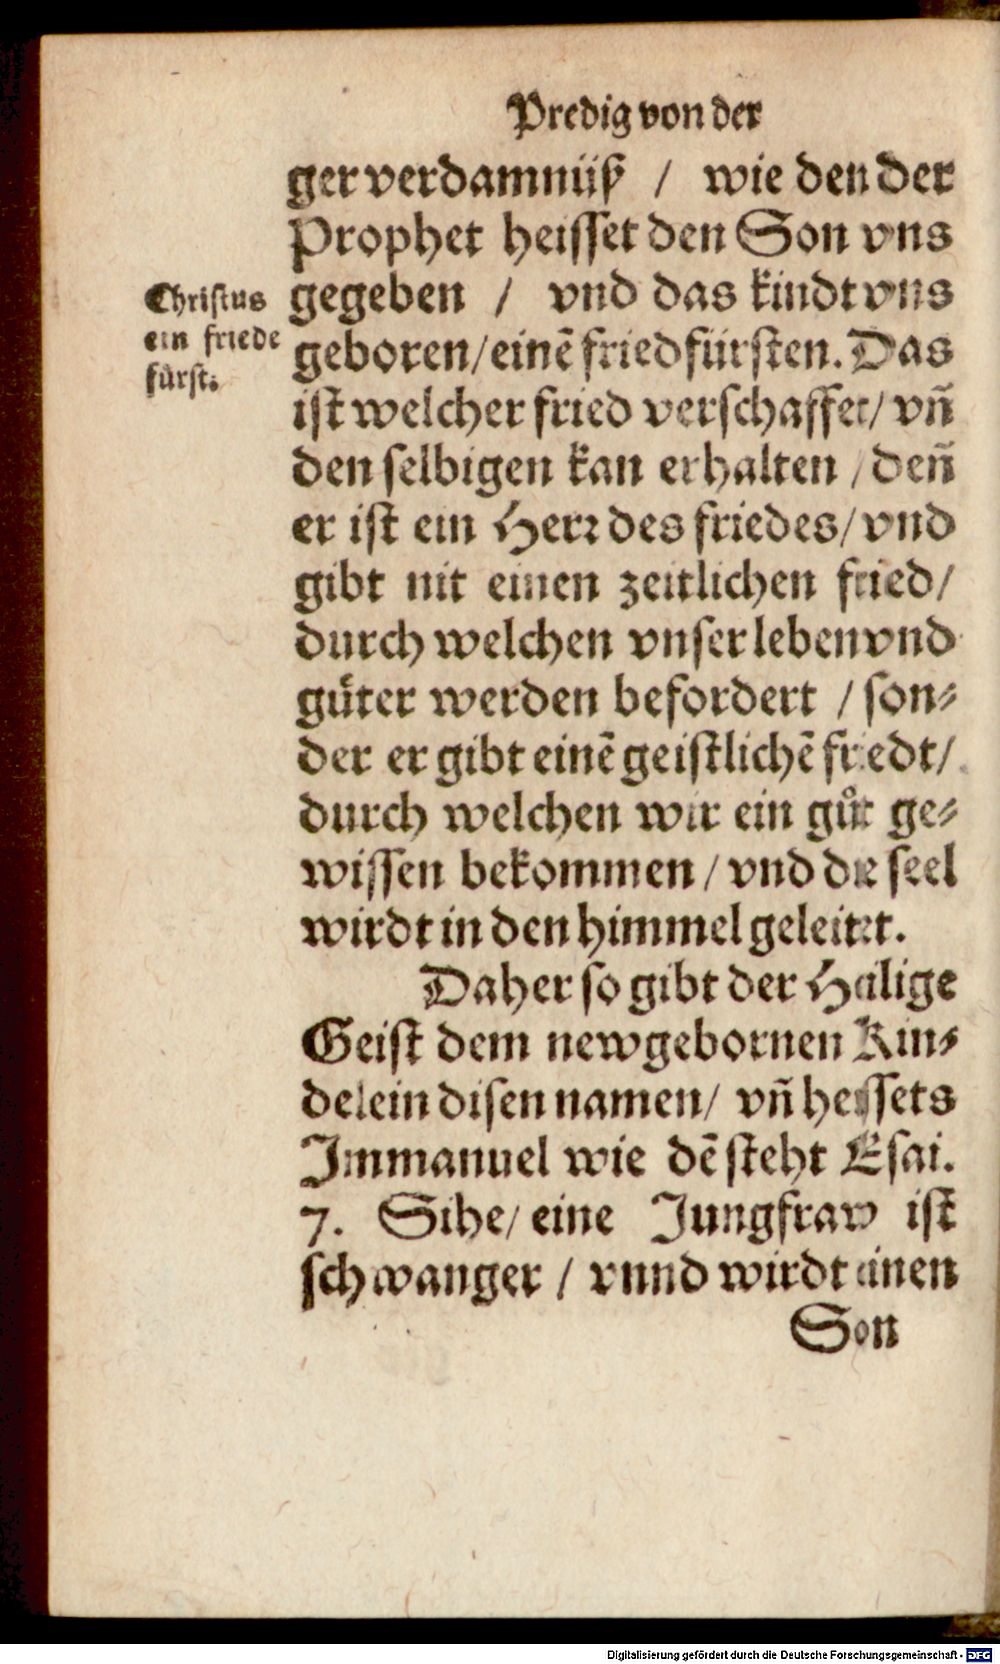 Predig von der
ger verdamnüß / wie den der
Prophet heisset den Son vns
gegeben / vnd das kindt vns
Christus
ein friede
fürst.
geboren/einē friedfürsten. Das
ist welcher fried verschaffet/ vñ
den selbigen kan erhalten / deñ
er ist ein Herr des friedes/ vnd
gibt nit einen zeitlichen fried/
durch welchen vnser leben vnd
güter werden befordert / son-
der er gibt einē geistlichē friedt/
durch welchen wir ein gůt ge-
wissen bekommen / vnd die seel
wirdt in den himmel geleitet.
Daher so gibt der Heilige
Geist dem newgebornen Kin-
delein disen namen/ vñ heissets
Immanuel wie dē steht Esai.
7. Sihe/ eine Jungfraw ist
schwanger / vnnd wirdt einen
Son
Digitalisierung gefördert durch die Deutsche Forschungsgemeinschaft - DFG